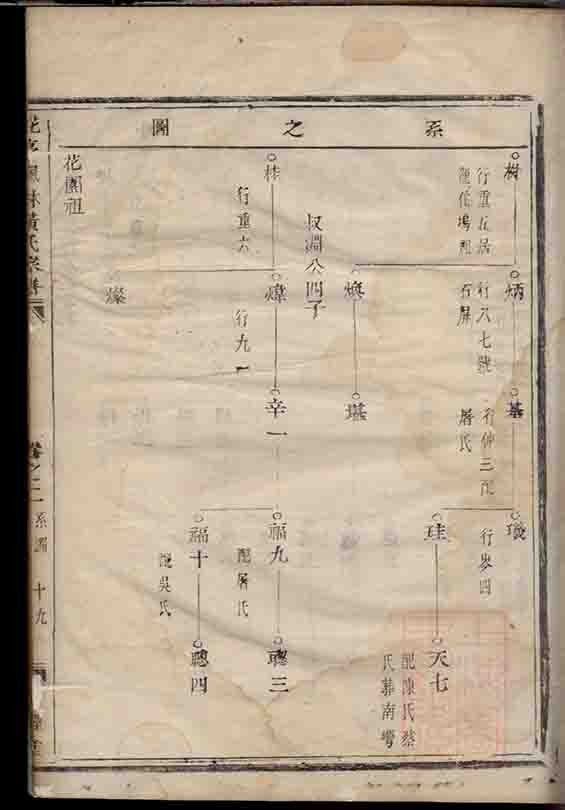 系之圖
樹
行重五居
炳
行六七號
石屏
基
行仲三配
屠氏
璇
行岑四
煥
堪
珪
天七
配陳氏蔡
氏葬南灣
叔淵公四子
林
行重六
煒
行九一
辛一
福九
配屠氏
聰三
福十
配吳氏
聰四
燦
花園祖
黃氏宗譜
卷之二
系圖
十九